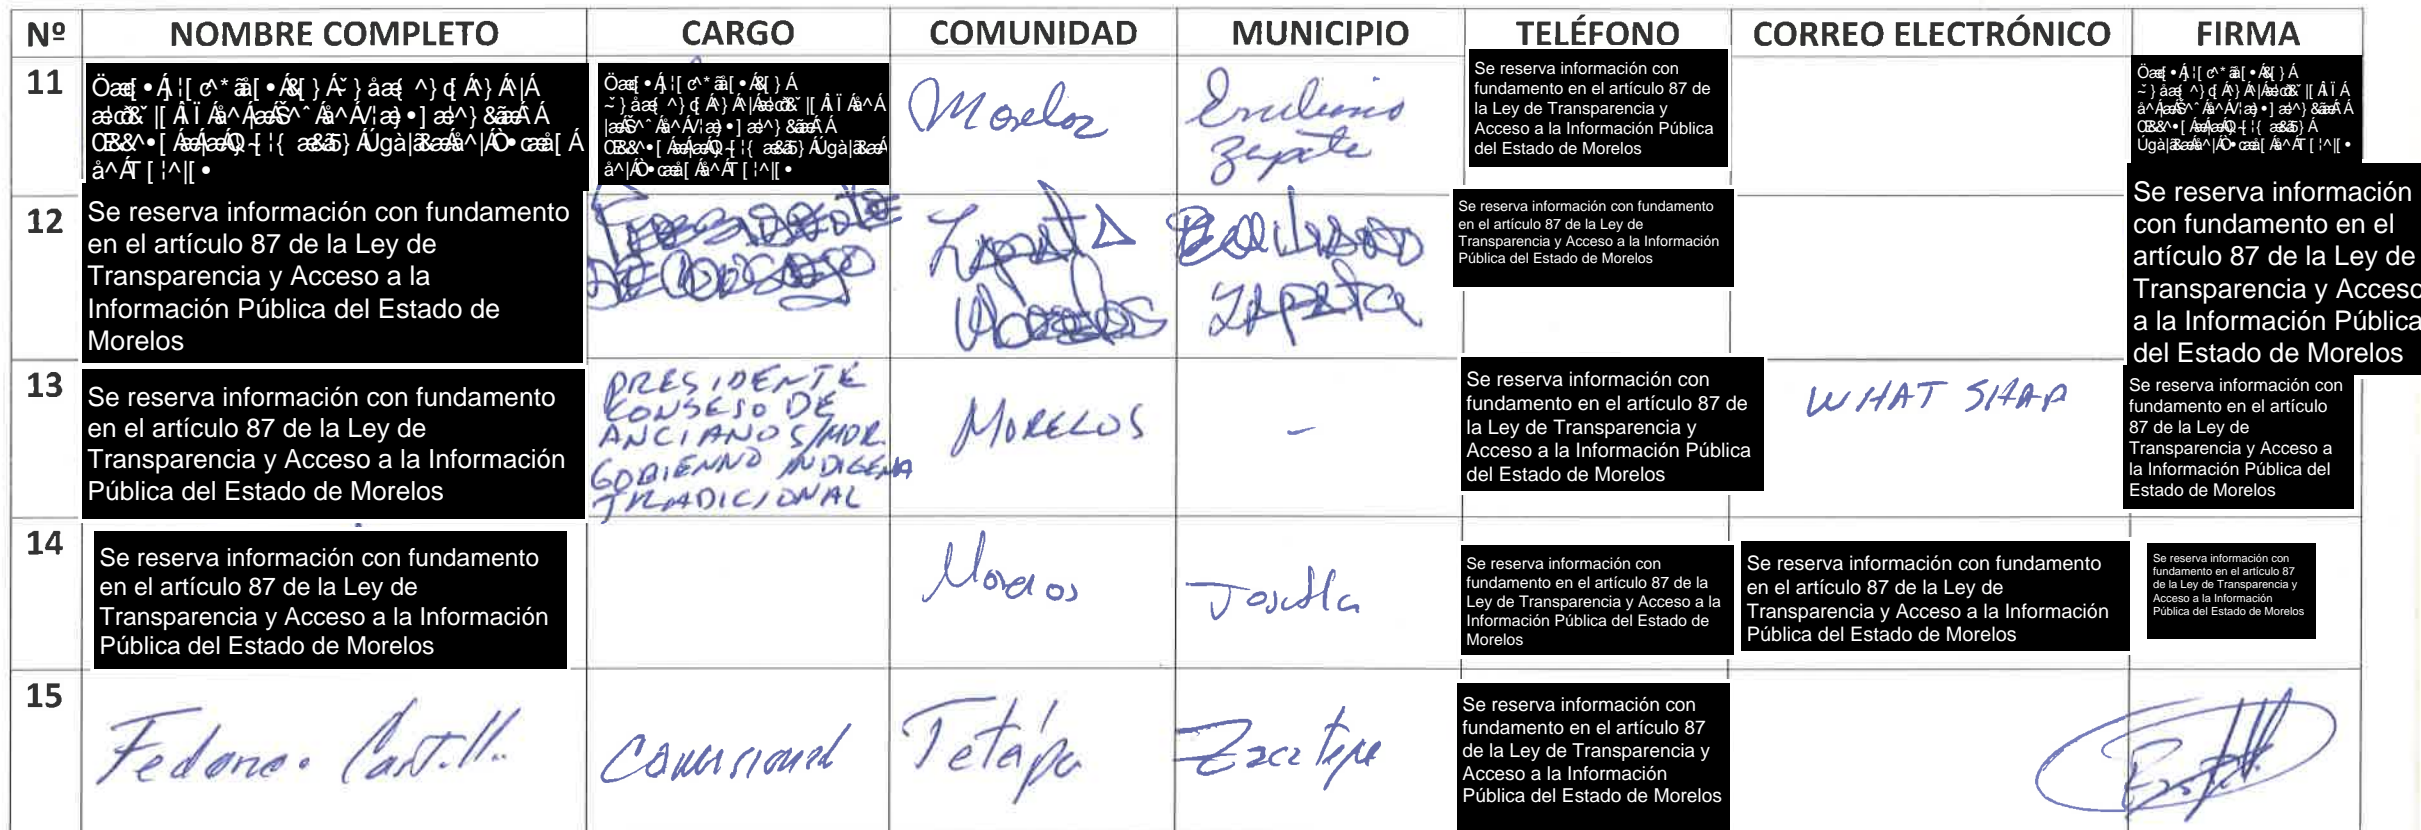 Nº NOMBRE COMPLETO CARGO COMUNIDAD MUNICIPIO TELÉFONO CORREO ELECTRÓNICO FIRMA
11
Morelos
Emiliano
Zapata
Se reserva información con
fundamento en el artículo 87 de
la Ley de Transparencia y
Acceso a la Información Pública
del Estado de Morelos
12
Se reserva información con fundamento
en el artículo 87 de la Ley de
Transparencia y Acceso a la
Información Pública del Estado de
Morelos
Zapata
Morelos
Zapata
Se reserva información con fundamento
en el artículo 87 de la Ley de
Transparencia y Acceso a la Información
Pública del Estado de Morelos
Se reserva información
con fundamento en el
artículo 87 de la Ley de
Transparencia y Acceso
a la Información Pública
del Estado de Morelos
13
Se reserva información con fundamento
en el artículo 87 de la Ley de
Transparencia y Acceso a la Información
Pública del Estado de Morelos
PRESIDENTE
CONSESO DE
ANCIANOS/MOR.
GOBIENNO INDIGENA
TRADICIONAL
MORELOS
-
Se reserva información con
fundamento en el artículo 87 de
la Ley de Transparencia y
Acceso a la Información Pública
del Estado de Morelos
WHAT SHAP
Se reserva información con
fundamento en el artículo
87 de la Ley de
Transparencia y Acceso a
la Información Pública del
Estado de Morelos
14
Se reserva información con fundamento
en el artículo 87 de la Ley de
Transparencia y Acceso a la Información
Pública del Estado de Morelos
Morelos
Se reserva información con
fundamento en el artículo 87 de la
Ley de Transparencia y Acceso a la
Información Pública del Estado de
Morelos
Se reserva información con fundamento
en el artículo 87 de la Ley de
Transparencia y Acceso a la Información
Pública del Estado de Morelos
Se reserva información con
fundamento en el artículo 87
de la Ley de Transparencia y
Acceso a la Información
Pública del Estado de Morelos
15
Castillo
Tetapa
Zacatepe
Se reserva información con
fundamento en el artículo 87
de la Ley de Transparencia y
Acceso a la Información
Pública del Estado de Morelos